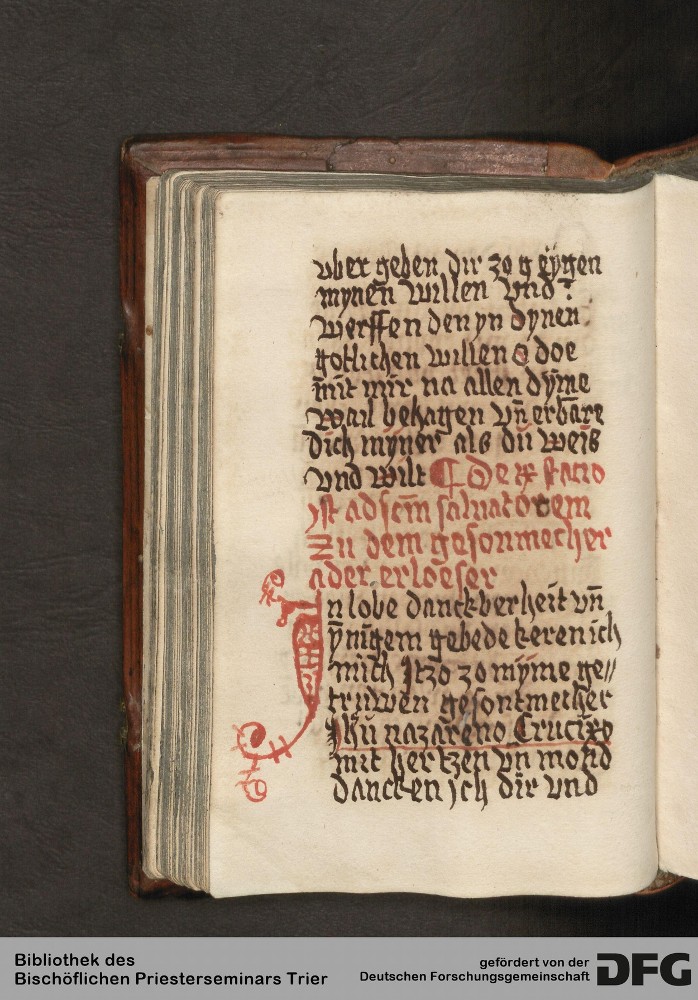 vber geben dir zo g eygen
mynen willen vnd
werffen den yn dynen
gotlichen willen o doe
mit mir na allen dyme
wail behagen vñ erbare
dich myner als du weis
vnd wilt ¶ De xx stacio
yst ad scm̄ saluatorem
zu dem gesontmecher
ader erloeser
In lobe danckberheit vñ
ynigem gebede keren ich
mich Itzo zo myme ge//
truwen gesontmecher
Jhū nazareno Crucixo
mit hertzen vn mond
dancken ich dir vnd
Bibliothek des
Bischöflichen Priesterseminars Trier
gefördert von der
Deutschen Forschungsgemeinschaft DFG